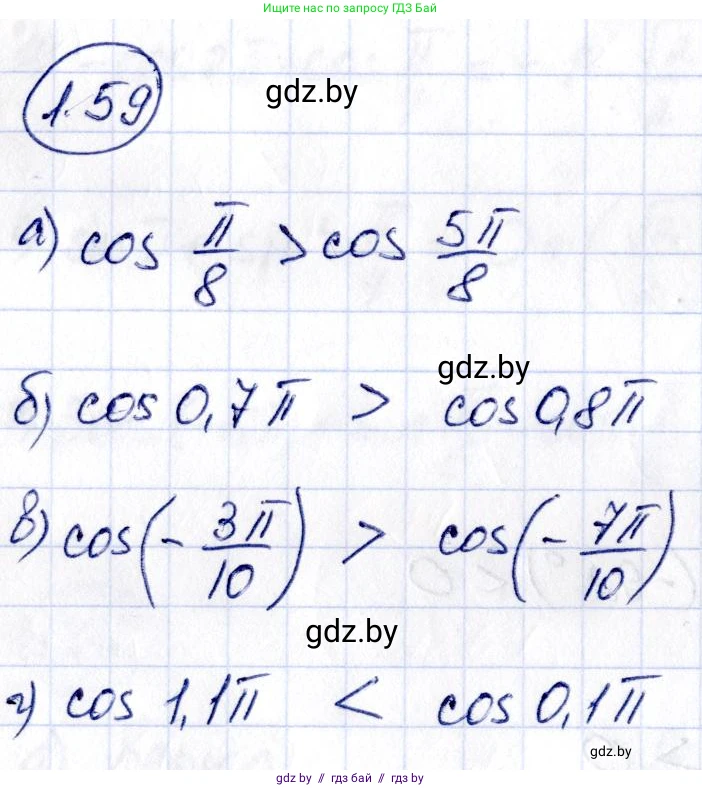 Ищите нас по запросу ГДЗ Бай
1.59
gdz.by
а) cos π/8 > cos 5π/8
gdz.by
б) cos 0,7π > cos 0,8π
в) cos(-3π/10) > cos(-7π/10)
gdz.by
г) cos 1,1π < cos 0,1π
gdz.by
gdz by // гдз бай // gdz by